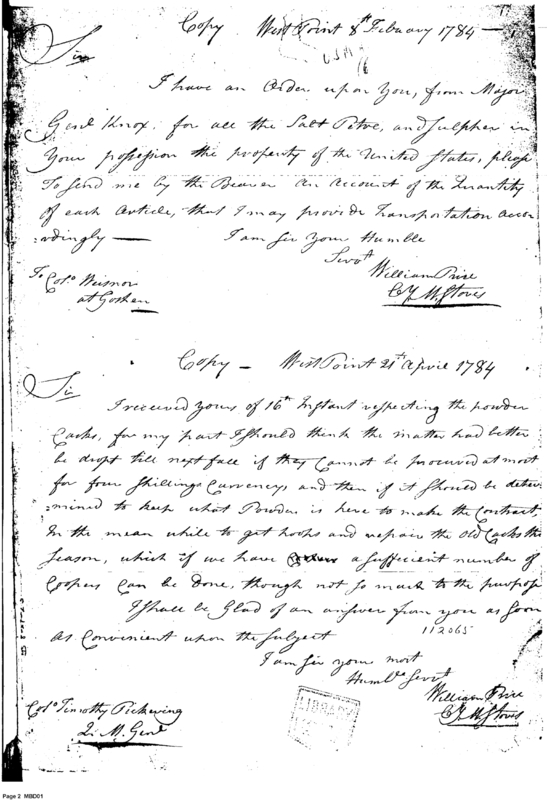 Copy West Point 8th Febuary 1784 —
Sir
USMA
I have an Order upon You, from Major
Genl. Knox, for all the Salt Petre, and Sulpher in
Your possession the property of the United States, please
To Send me by the Bearer An Account of the Quantity
of each Article, that I may provide Transportation accor
:rdingly — I am Sir Your Humble
Servt.
William Price
C.y M. Stores
To Colo. Wisnor
at Goshen
Copy — West Point 21st April 1784
Sir
I received yours of 16th Instant respecting the powder
Casks, for my part I should think the matter had better
be dropt till next fall if they Cannot be procured at most
for four Shillings Currency, and then if it should be deter
:mined to keep what Powder is here to make the Contract,
In the mean while to get hoops and repair the old Casks the
Season, which if we have a sufficient number of
Coopers Can be Done, though not so much to the purpose
I shall be Glad of an answer from you as soon
As Convenient upon the Subject
112065
I am Sir your most
Humbe. Servt.
William Price
C.y M Stores
Colo. Timothy Pickering
Q. M. Genl.
LIBRARY
Page 2 MBD01